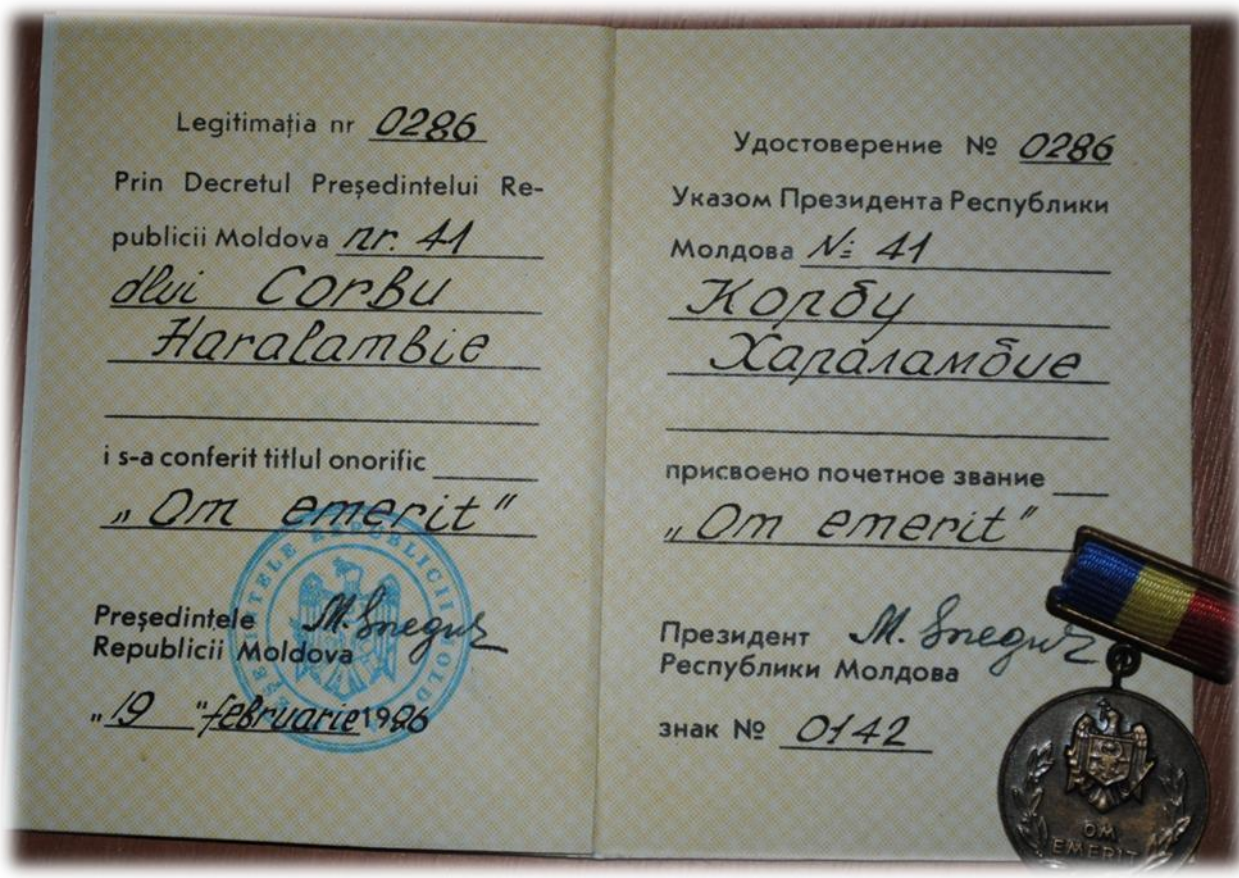 Legitimația nr 0286
Prin Decretul Președintelui Re-
publicii Moldova nr. 41
dlui Corbu
Haralambie
i s-a conferit titlul onorific
„Om emerit”
Președintele M. Snegur
Republicii Moldova
„19” februarie 1996
PREȘEDINTELE REPUBLICII MOLDOVA
Удостоверение № 0286
Указом Президента Республики
Молдова № 41
Корбу
Хараламбие
присвоено почетное звание
„Om emerit”
Президент M. Snegur
Республики Молдова
знак № 0142
OM
EMERIT